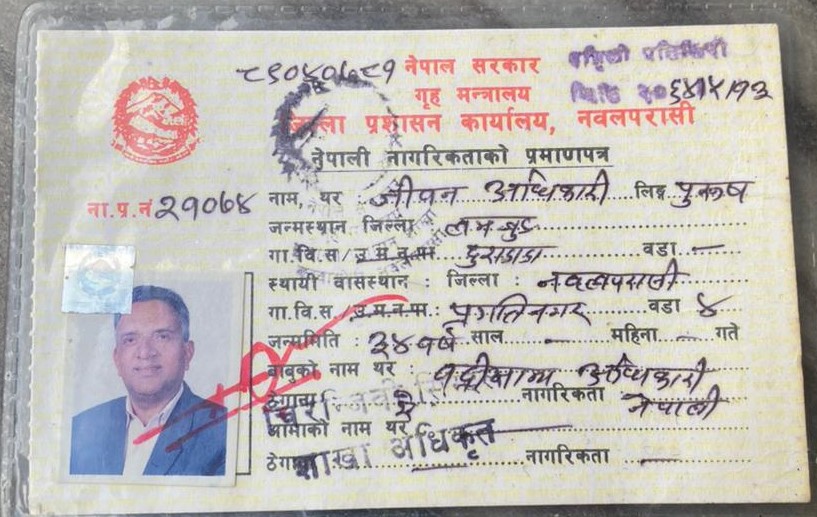 नेपाल सरकार
गृह मन्त्रालय
जिल्ला प्रशासन कार्यालय, नवलपरासी
नेपाली नागरिकताको प्रमाणपत्र
ना.प्र.नं २१०७४ नाम, थर जीवन अधिकारी लिङ्ग पुरुष
जन्मस्थान जिल्ला लमजुङ
गा.वि.स/उ.म.न.पा. दुराडाडा वडा —
स्थायी वासस्थान : जिल्ला : नवलपरासी
गा.वि.स./उ.म.न.पा.: प्रगतिनगर वडा ४
जन्ममिति : ३४ वर्ष साल — महिना — गते
बाबुको नाम थर : अधिकारी
ठेगाना ऐ नागरिकता नेपाली
आमाको नाम थर
ठेगाना नागरिकता —
शाखा अधिकृत